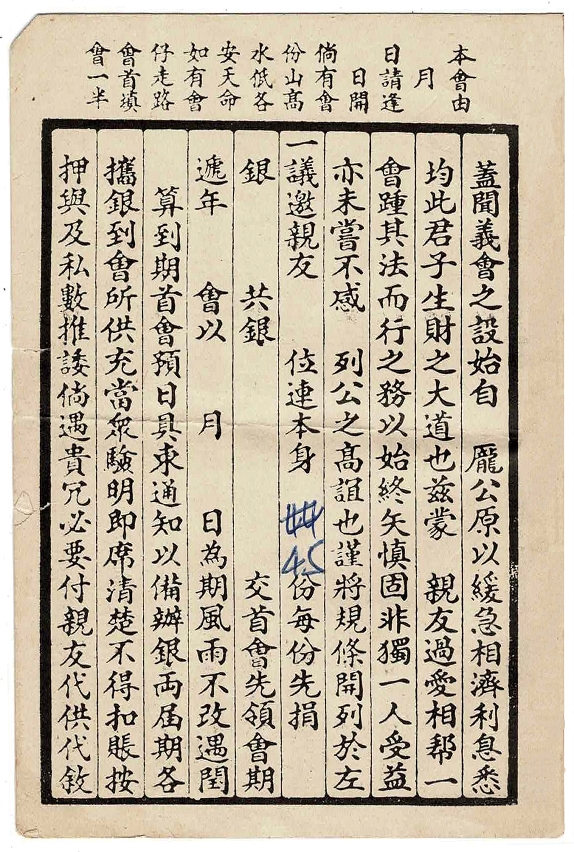 本會由
月
日請逢
日開
倘有會
份山高
水低各
安天命
如有會
仔走路
會首填
會一半
蓋聞義會之設始自　龐公原以緩急相濟利息悉
均此君子生財之大道也茲蒙　親友過愛相幇一
會踵其法而行之務以始終矢慎固非獨一人受益
亦未嘗不感　列公之高誼也謹將規條開列於左
一議邀親友　位連本身　45份每份先捐
銀　共銀　交首會先領會期
遞年　會以　月　日為期風雨不改遇閏
算到期首會預日具柬通知以備辦銀両屆期各
攜銀到會所供充當眾驗明即席清楚不得扣賬按
押與及私數推諉倘遇貴冗必要付親友代供代敘